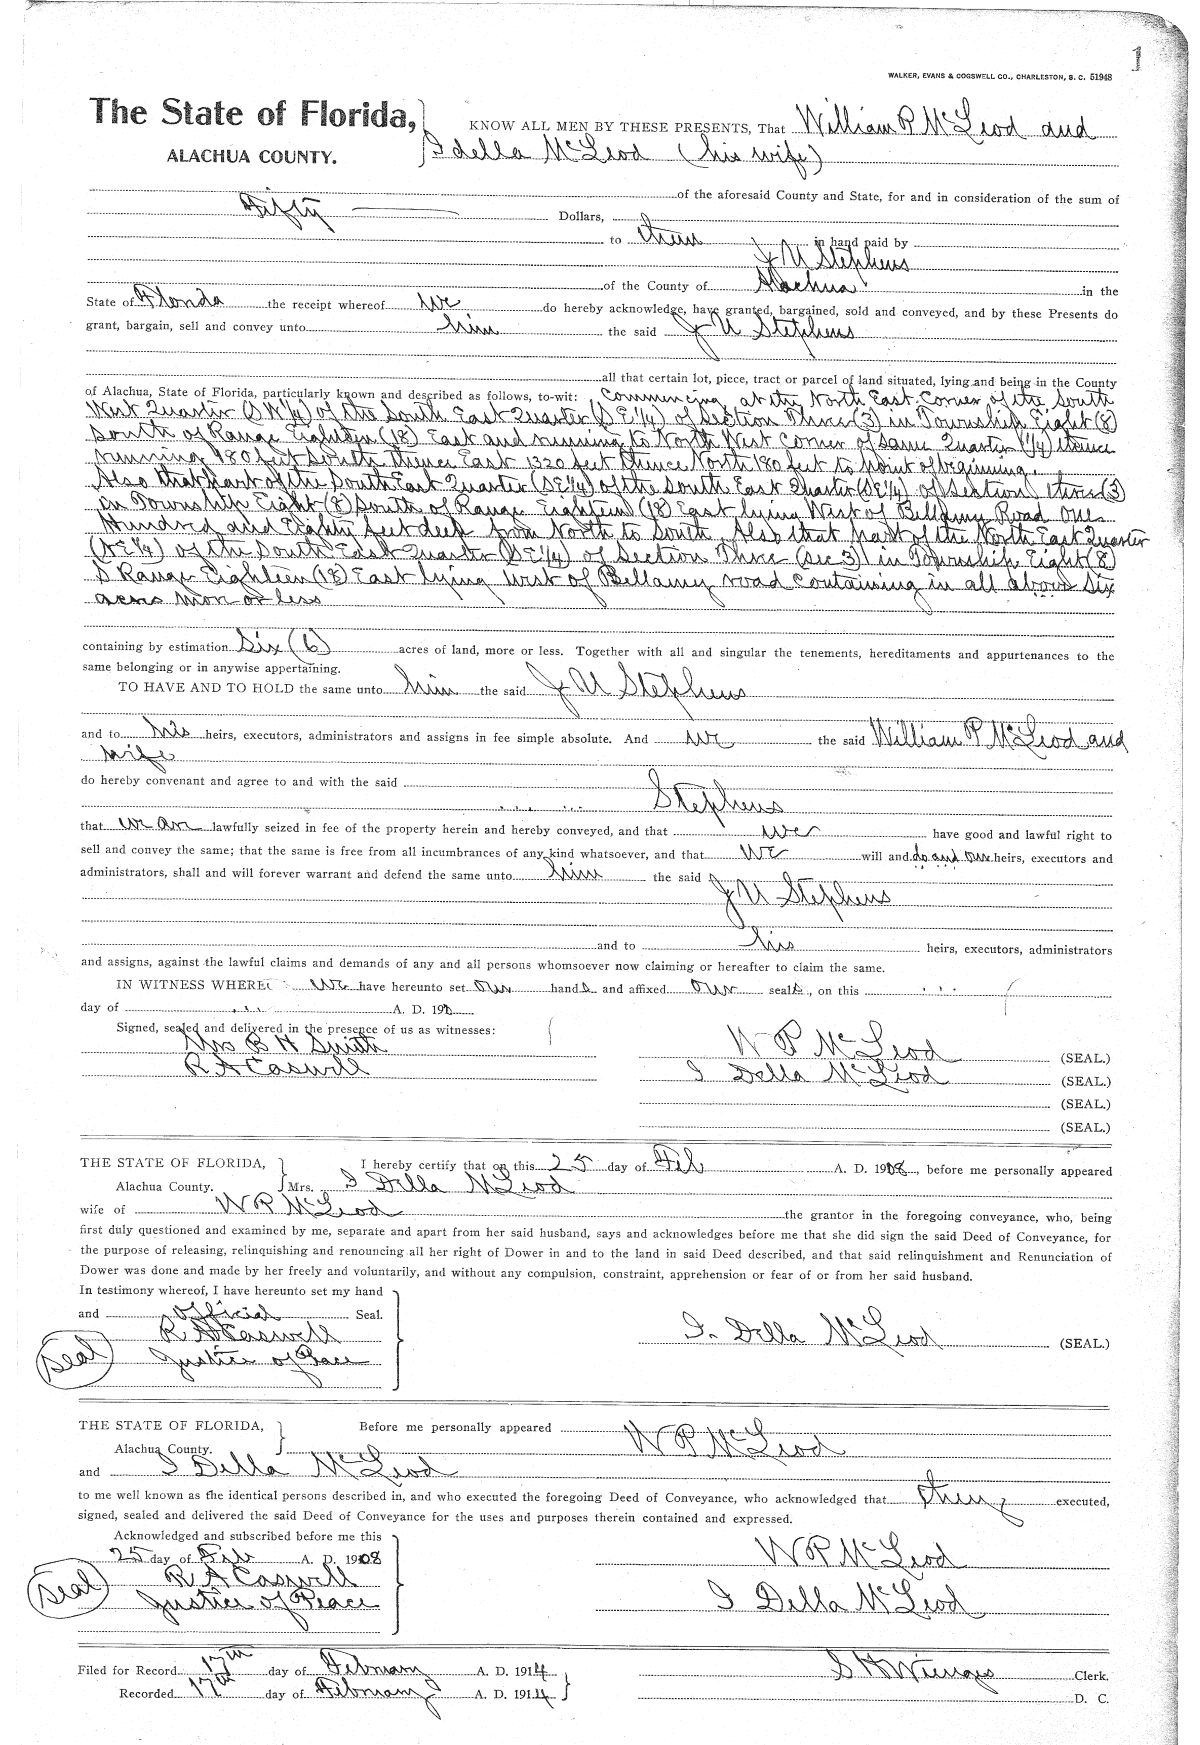 1
WALKER, EVANS & COGSWELL CO., CHARLESTON, S. C. 51948
The State of Florida,
ALACHUA COUNTY.
KNOW ALL MEN BY THESE PRESENTS, That William P McLeod and
I della McLeod (his wife)
of the aforesaid County and State, for and in consideration of the sum of
Fifty Dollars,
to them in hand paid by
J U Stephens
of the County of Alachua in the
State of Florida the receipt whereof we do hereby acknowledge, have granted, bargained, sold and conveyed, and by these Presents do
grant, bargain, sell and convey unto him the said J U Stephens
all that certain lot, piece, tract or parcel of land situated, lying and being in the County
of Alachua, State of Florida, particularly known and described as follows, to-wit: Commencing at the North East Corner of the South
West Quarter (SW1/4) of the South East Quarter (SE1/4) of Section Three (3) in Township Eight (8)
South of Range Eighteen (18) East and running to North West Corner of same Quarter (1/4) thence
running 180 feet South thence East 1320 feet thence North 180 feet to point of beginning.
Also that part of the South East Quarter (SE1/4) of the South East Quarter (SE1/4) of Section three (3)
in Township Eight (8) South of Range Eighteen (18) East lying West of Bellamy Road One
Hundred and Eighty feet deep from North to South. Also that part of the North East Quarter
(NE1/4) of the South East Quarter (SE1/4) of Section Three (Sec 3) in Township Eight (8)
S Range Eighteen (18) East lying West of Bellamy road containing in all above Six
acres mor or less
containing by estimation Six (6) acres of land, more or less. Together with all and singular the tenements, hereditaments and appurtenances to the
same belonging or in anywise appertaining.
TO HAVE AND TO HOLD the same unto him the said J U Stephens
and to his heirs, executors, administrators and assigns in fee simple absolute. And we the said William P McLeod and
wife
do hereby convenant and agree to and with the said
Stephens
that we are lawfully seized in fee of the property herein and hereby conveyed, and that we have good and lawful right to
sell and convey the same; that the same is free from all incumbrances of any kind whatsoever, and that we will and do and our heirs, executors and
administrators, shall and will forever warrant and defend the same unto him the said J U Stephens
and to his heirs, executors, administrators
and assigns, against the lawful claims and demands of any and all persons whomsoever now claiming or hereafter to claim the same.
IN WITNESS WHEREOF we have hereunto set our hands and affixed our seals, on this
day of A. D. 190
Signed, sealed and delivered in the presence of us as witnesses:
Mrs B H Smith
R A Caswell
W P McLeod (SEAL.)
I Della McLeod (SEAL.)
(SEAL.)
(SEAL.)
THE STATE OF FLORIDA,
Alachua County.
I hereby certify that on this 25 day of Feb A. D. 1908, before me personally appeared
Mrs. I Della McLeod
wife of W P McLeod the grantor in the foregoing conveyance, who, being
first duly questioned and examined by me, separate and apart from her said husband, says and acknowledges before me that she did sign the said Deed of Conveyance, for
the purpose of releasing, relinquishing and renouncing all her right of Dower in and to the land in said Deed described, and that said relinquishment and Renunciation of
Dower was done and made by her freely and voluntarily, and without any compulsion, constraint, apprehension or fear of or from her said husband.
In testimony whereof, I have hereunto set my hand
and official Seal.
R A Caswell
Seal Justice of Peace
I. Della McLeod (SEAL.)
THE STATE OF FLORIDA,
Alachua County.
Before me personally appeared W P McLeod
and I Della McLeod
to me well known as the identical persons described in, and who executed the foregoing Deed of Conveyance, who acknowledged that they executed,
signed, sealed and delivered the said Deed of Conveyance for the uses and purposes therein contained and expressed.
Acknowledged and subscribed before me this
25 day of Feb A. D. 1908
R A Caswell
Seal Justice of Peace
W P McLeod
I Della McLeod
Filed for Record 17th day of February A. D. 1914
Recorded 17th day of February A. D. 1914
S H Wienges Clerk.
D. C.